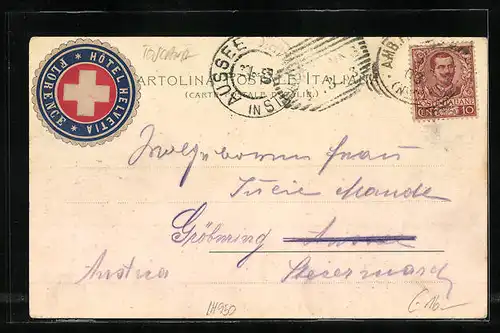 Toscana
HOTEL HELVETIA
FLORENCE
AUSSEE
IN STEI
AMB
CARTOLINA POSTALE ITALIANA
(CARTE POSTALE D'ITALIE)
CENT. 10
Wolgeboren Frau
Lucie Mande
Gröbming
Aussee
Austria
Steiermark
LH950
€ 16.-